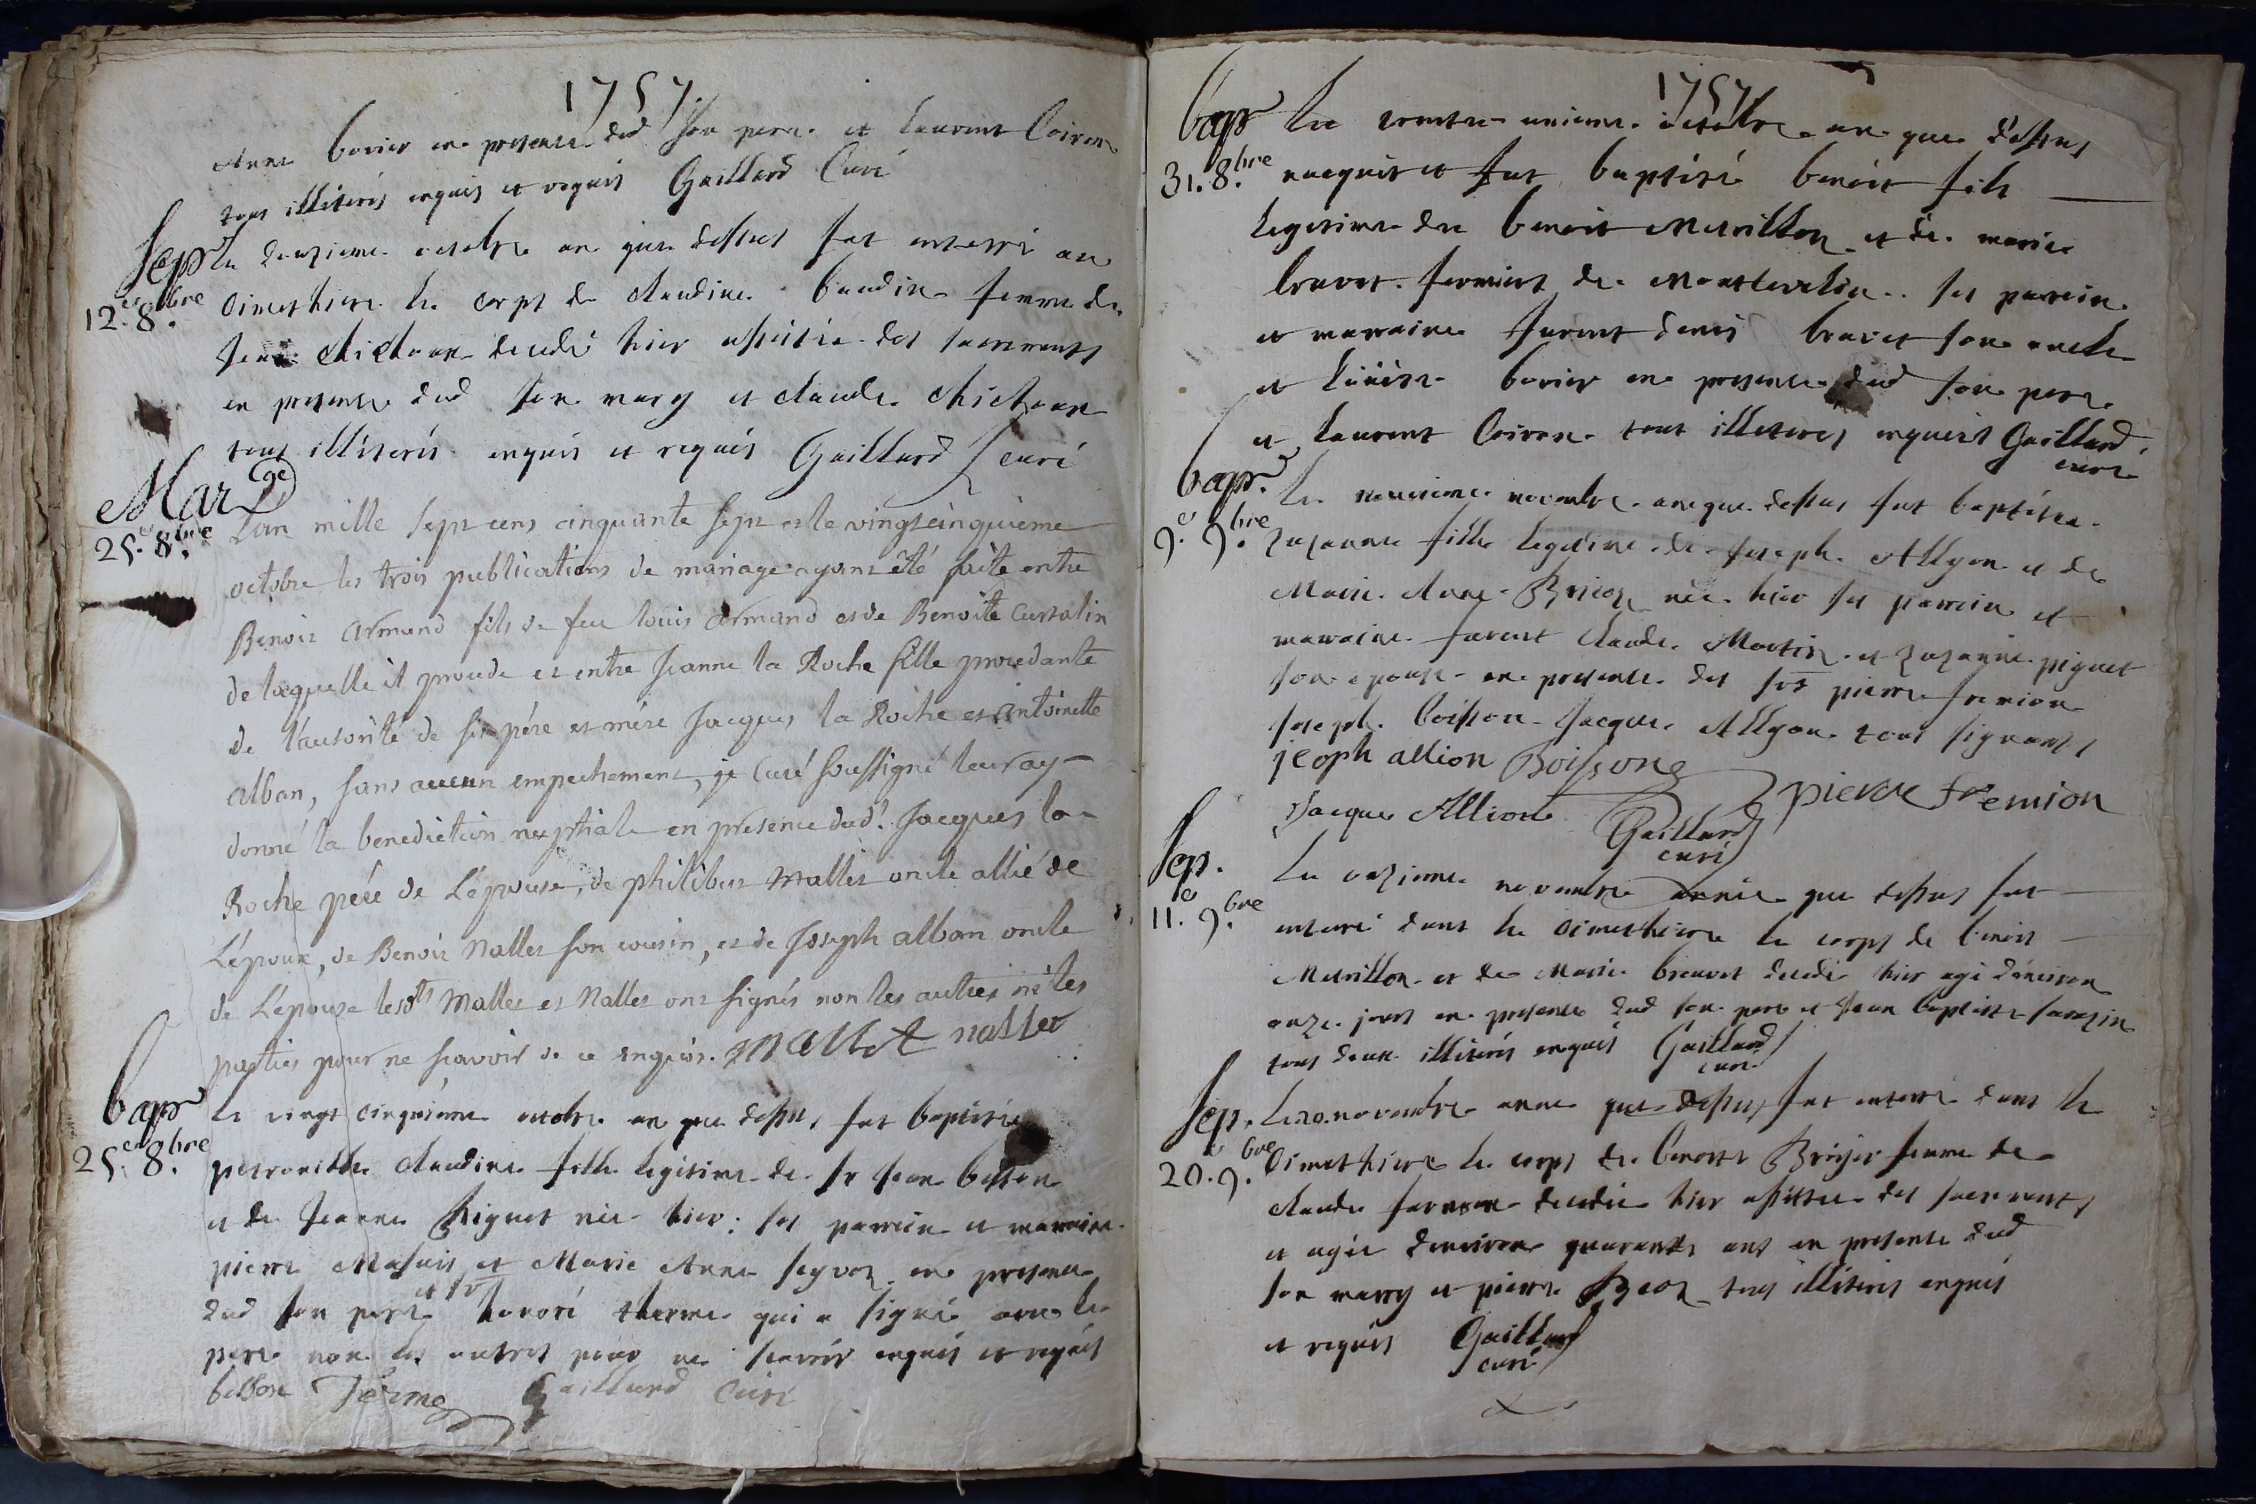 1757.
Anne bovier en presence dud son pere et laurent Coiron
tous illiterés enquis et requis Gaillard Curé
Sep le douzieme octobre an que dessus fut enterré au
12.e 8.bre Cimethiere le corps de claudine baudin femme de
decedé hier assistée des sacrements
en presence dud son mary et claude
tous illiterés enquis et requis Gaillard curé
Mar ge
25.e 8.bre L'an mille sept cens cinquante sept et le vingtcinquieme
octobre les trois publications de mariage ayant été faite entre
Benoit Armand fils de feu louis Armand et de Benoite Curtalin
de laquelle il procede et entre Jeanne la Roche fille procedante
de l'autorité de ses pére et mére Jacques la Roche et Antoinette
alban, sans aucun empechement, je Curé soussigné leur ay
donné la benediction nuptiale en presence dud.t Jacques la
Roche pére de L'épouse, de philibert Mallet oncle allié de
L'époux, de Benoit Nallet son cousin, et de Joseph alban oncle
de L'épouse lesdts Mallet et Nallet ont signés non les autres ni les
parties pour ne scavoir de ce enquis. Mallet nallet
bap le vingt cinquieme octobre an que dessus fut baptisée
25.e 8.bre petronille claudine fille legitime de sr Jean besson
et de Jeanne piguet née hier: ses parrein et marraine
pierre et Marie Anne seyvoz en presence
dud son pere et sr honoré therme qui a signé avec le
pere non les autres pour ne scavoir enquis et requis
besson Térme Gaillard Curé
1757
bap Le trente unieme octobre an que dessus
31. 8.bre nacquit et fut baptisé benoit fils
legitime de benoit Meurillon et de marie
bravet fermiers de ses parrein
et marraine furent denis bravet son oncle
et bovier en presence dud son pere
et laurent Coiron tous illiteres enquis Gaillard
curé
bap. Le neuvieme novembre an que dessus fut baptisée
9.e 9.bre suzanne fille legitime de Joseph Allyon et de
Marie Anne née hier ses parrein et
marraine furent claude Martin et suzanne piguet
son epouse en presence des srs pierre fremion
Joseph boisson Jacques Allyon tous signants
jeoph allion Boissong
Jacque Allion pierre fremion
Gaillard
curé
Sep. Le onzieme novembre année que dessus fut
11.e 9.bre enterré dans le cimethiere le corps de benoit
Meurillon et de Marie bravet decedé hier agé d'environ
onze jours en presence dud son pere et Jean baptiste sarazin
tous deux illiterés enquis Gaillard
curé
Sep. Le 20. novembre année que dessus fut enterré dans le
20.e 9.bre Cimethiere le corps de benoite femme de
claude decedée hier assistée des sacrements
et agée d'environ quarante ans en presence dud
son marry et pierre tous illiterés enquis
et requis Gaillard
curé